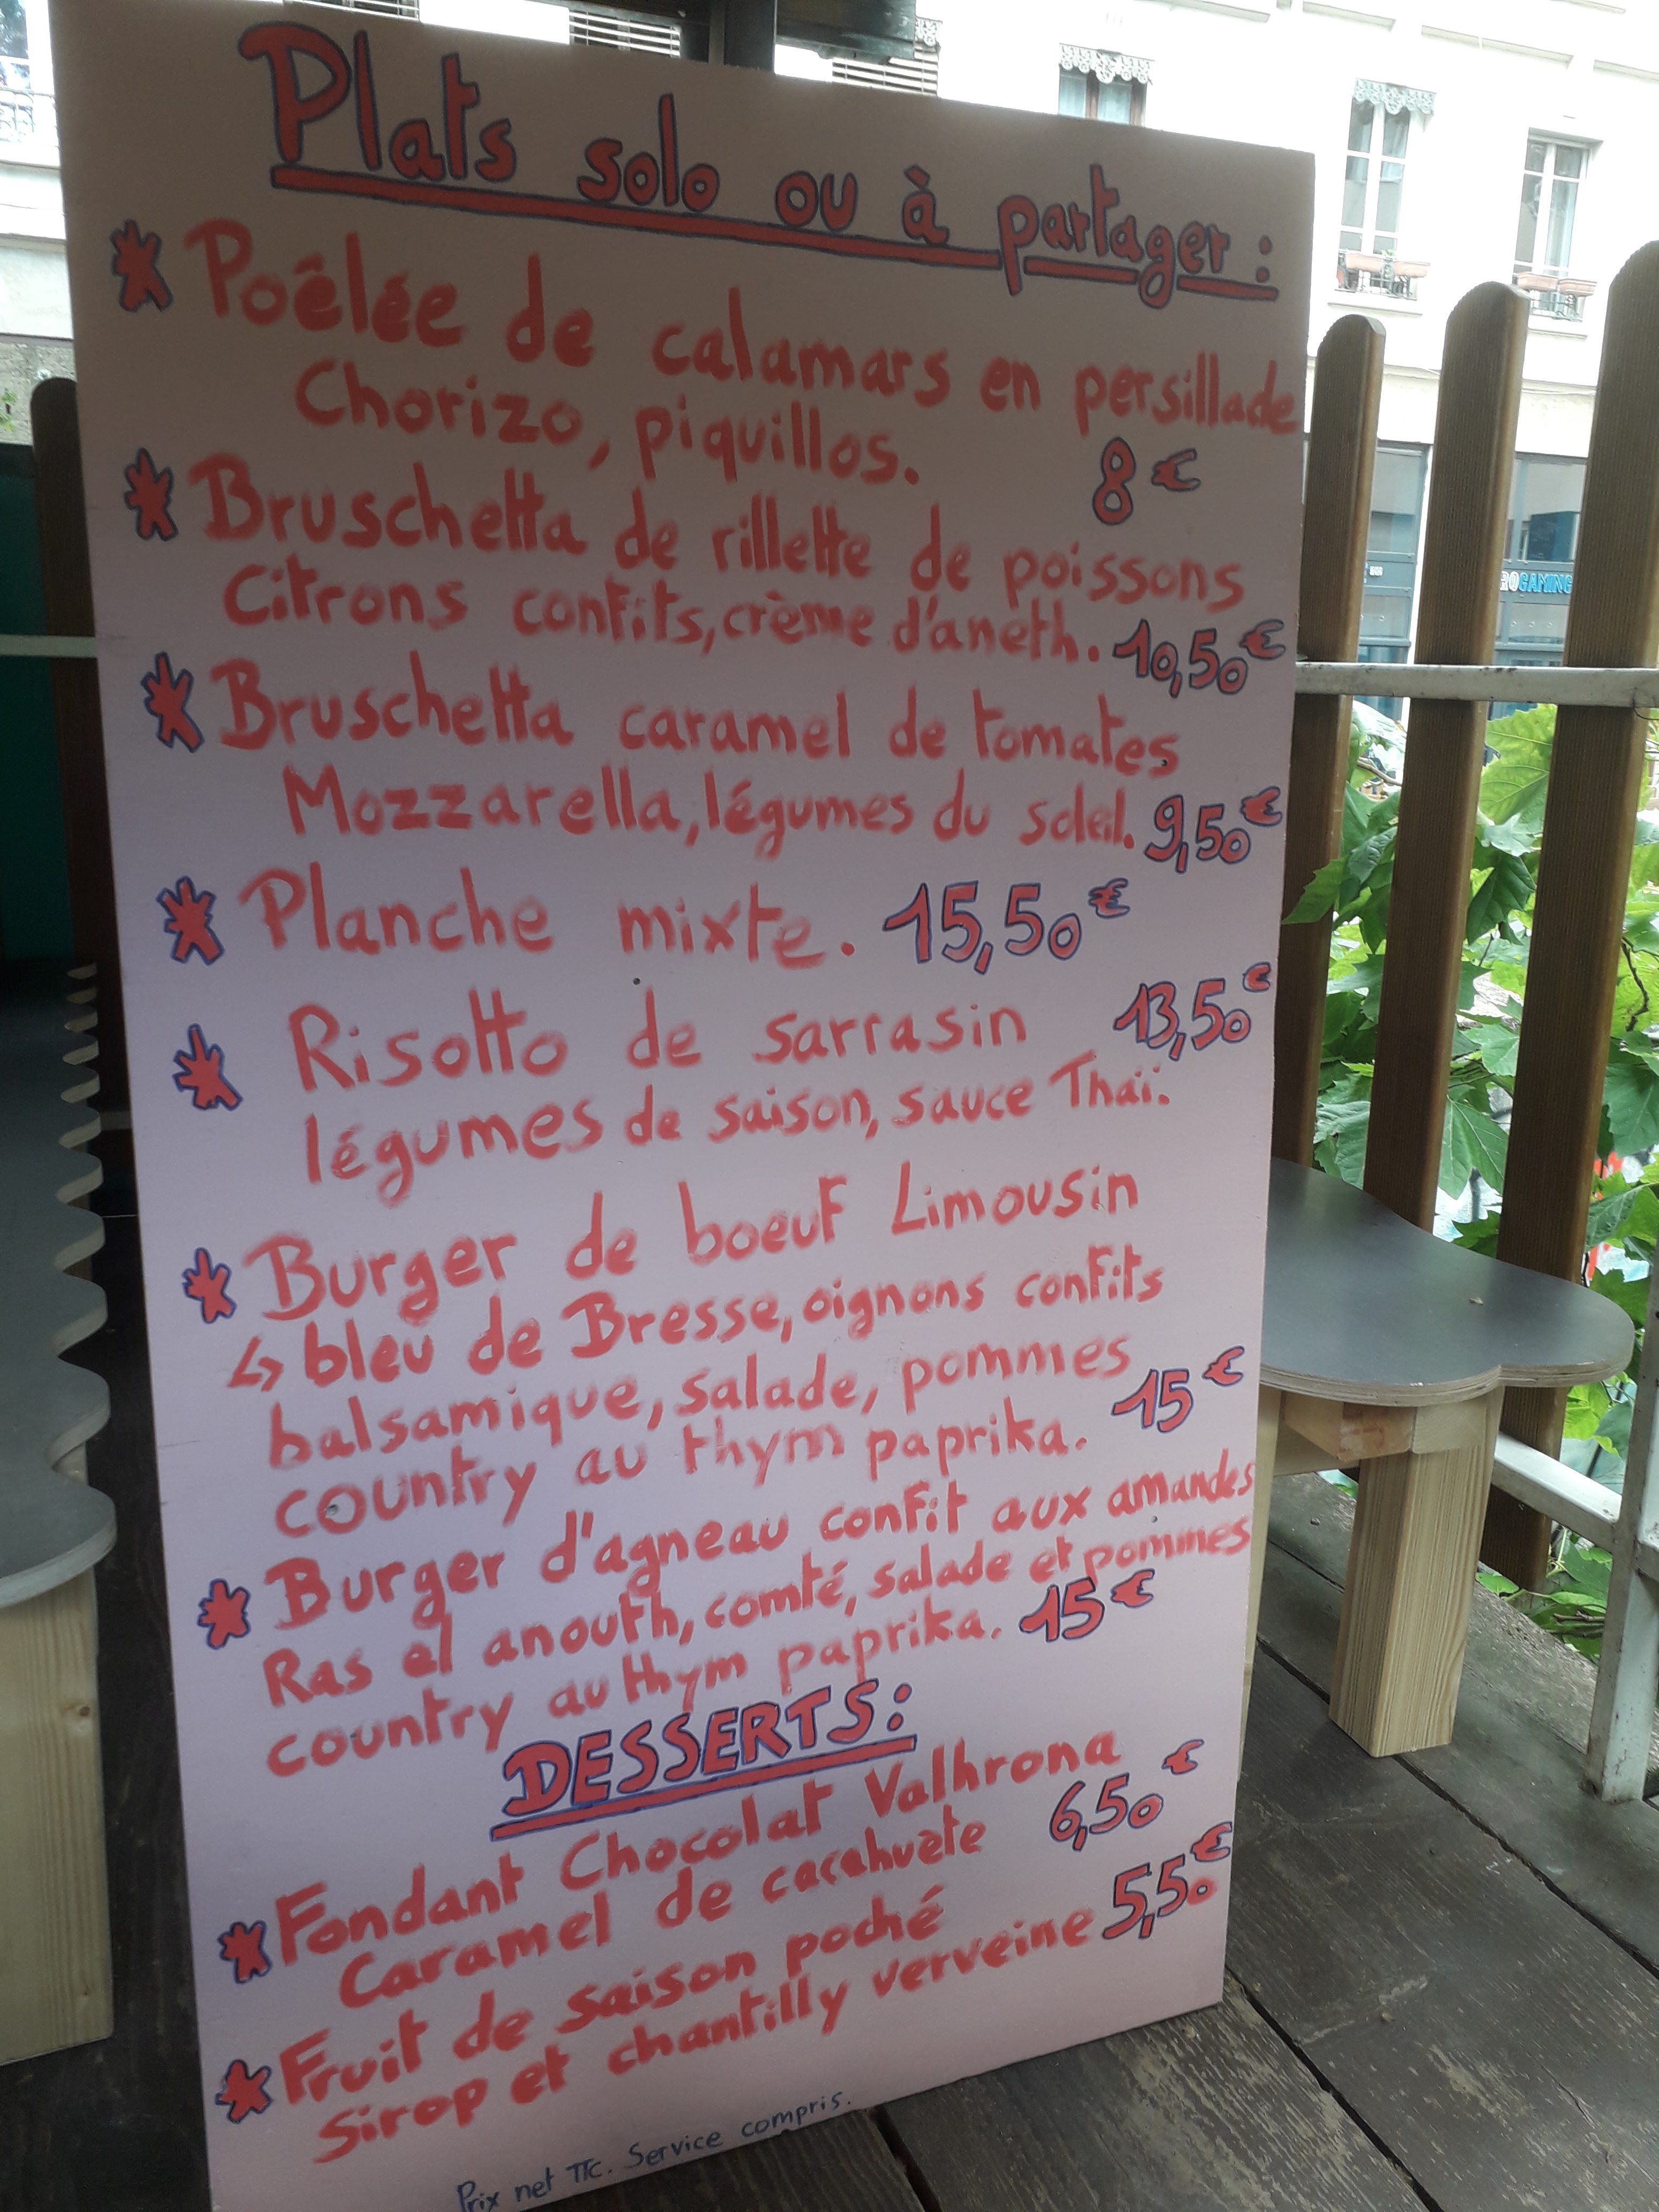 Plats solo ou à partager :
* Poêlée de calamars en persillade
Chorizo, piquillos. 8€
* Bruschetta de rillette de poissons
Citrons confits, crème d'aneth. 10,50€
* Bruschetta caramel de tomates
Mozzarella, légumes du soleil. 9,50€
* Planche mixte. 15,50€
* Risotto de sarrasin 13,50€
légumes de saison, sauce Thaï.
* Burger de boeuf Limousin
↳ bleu de Bresse, oignons confits
balsamique, salade, pommes
country au thym paprika. 15€
* Burger d'agneau confit aux amandes
Ras el anouth, comté, salade et pommes
country au thym paprika. 15€
DESSERTS:
* Fondant Chocolat Valhrona
Caramel de cacahuète 6,50€
* Fruit de saison poché
Sirop et chantilly verveine 5,50€
Prix net TTC. Service compris.